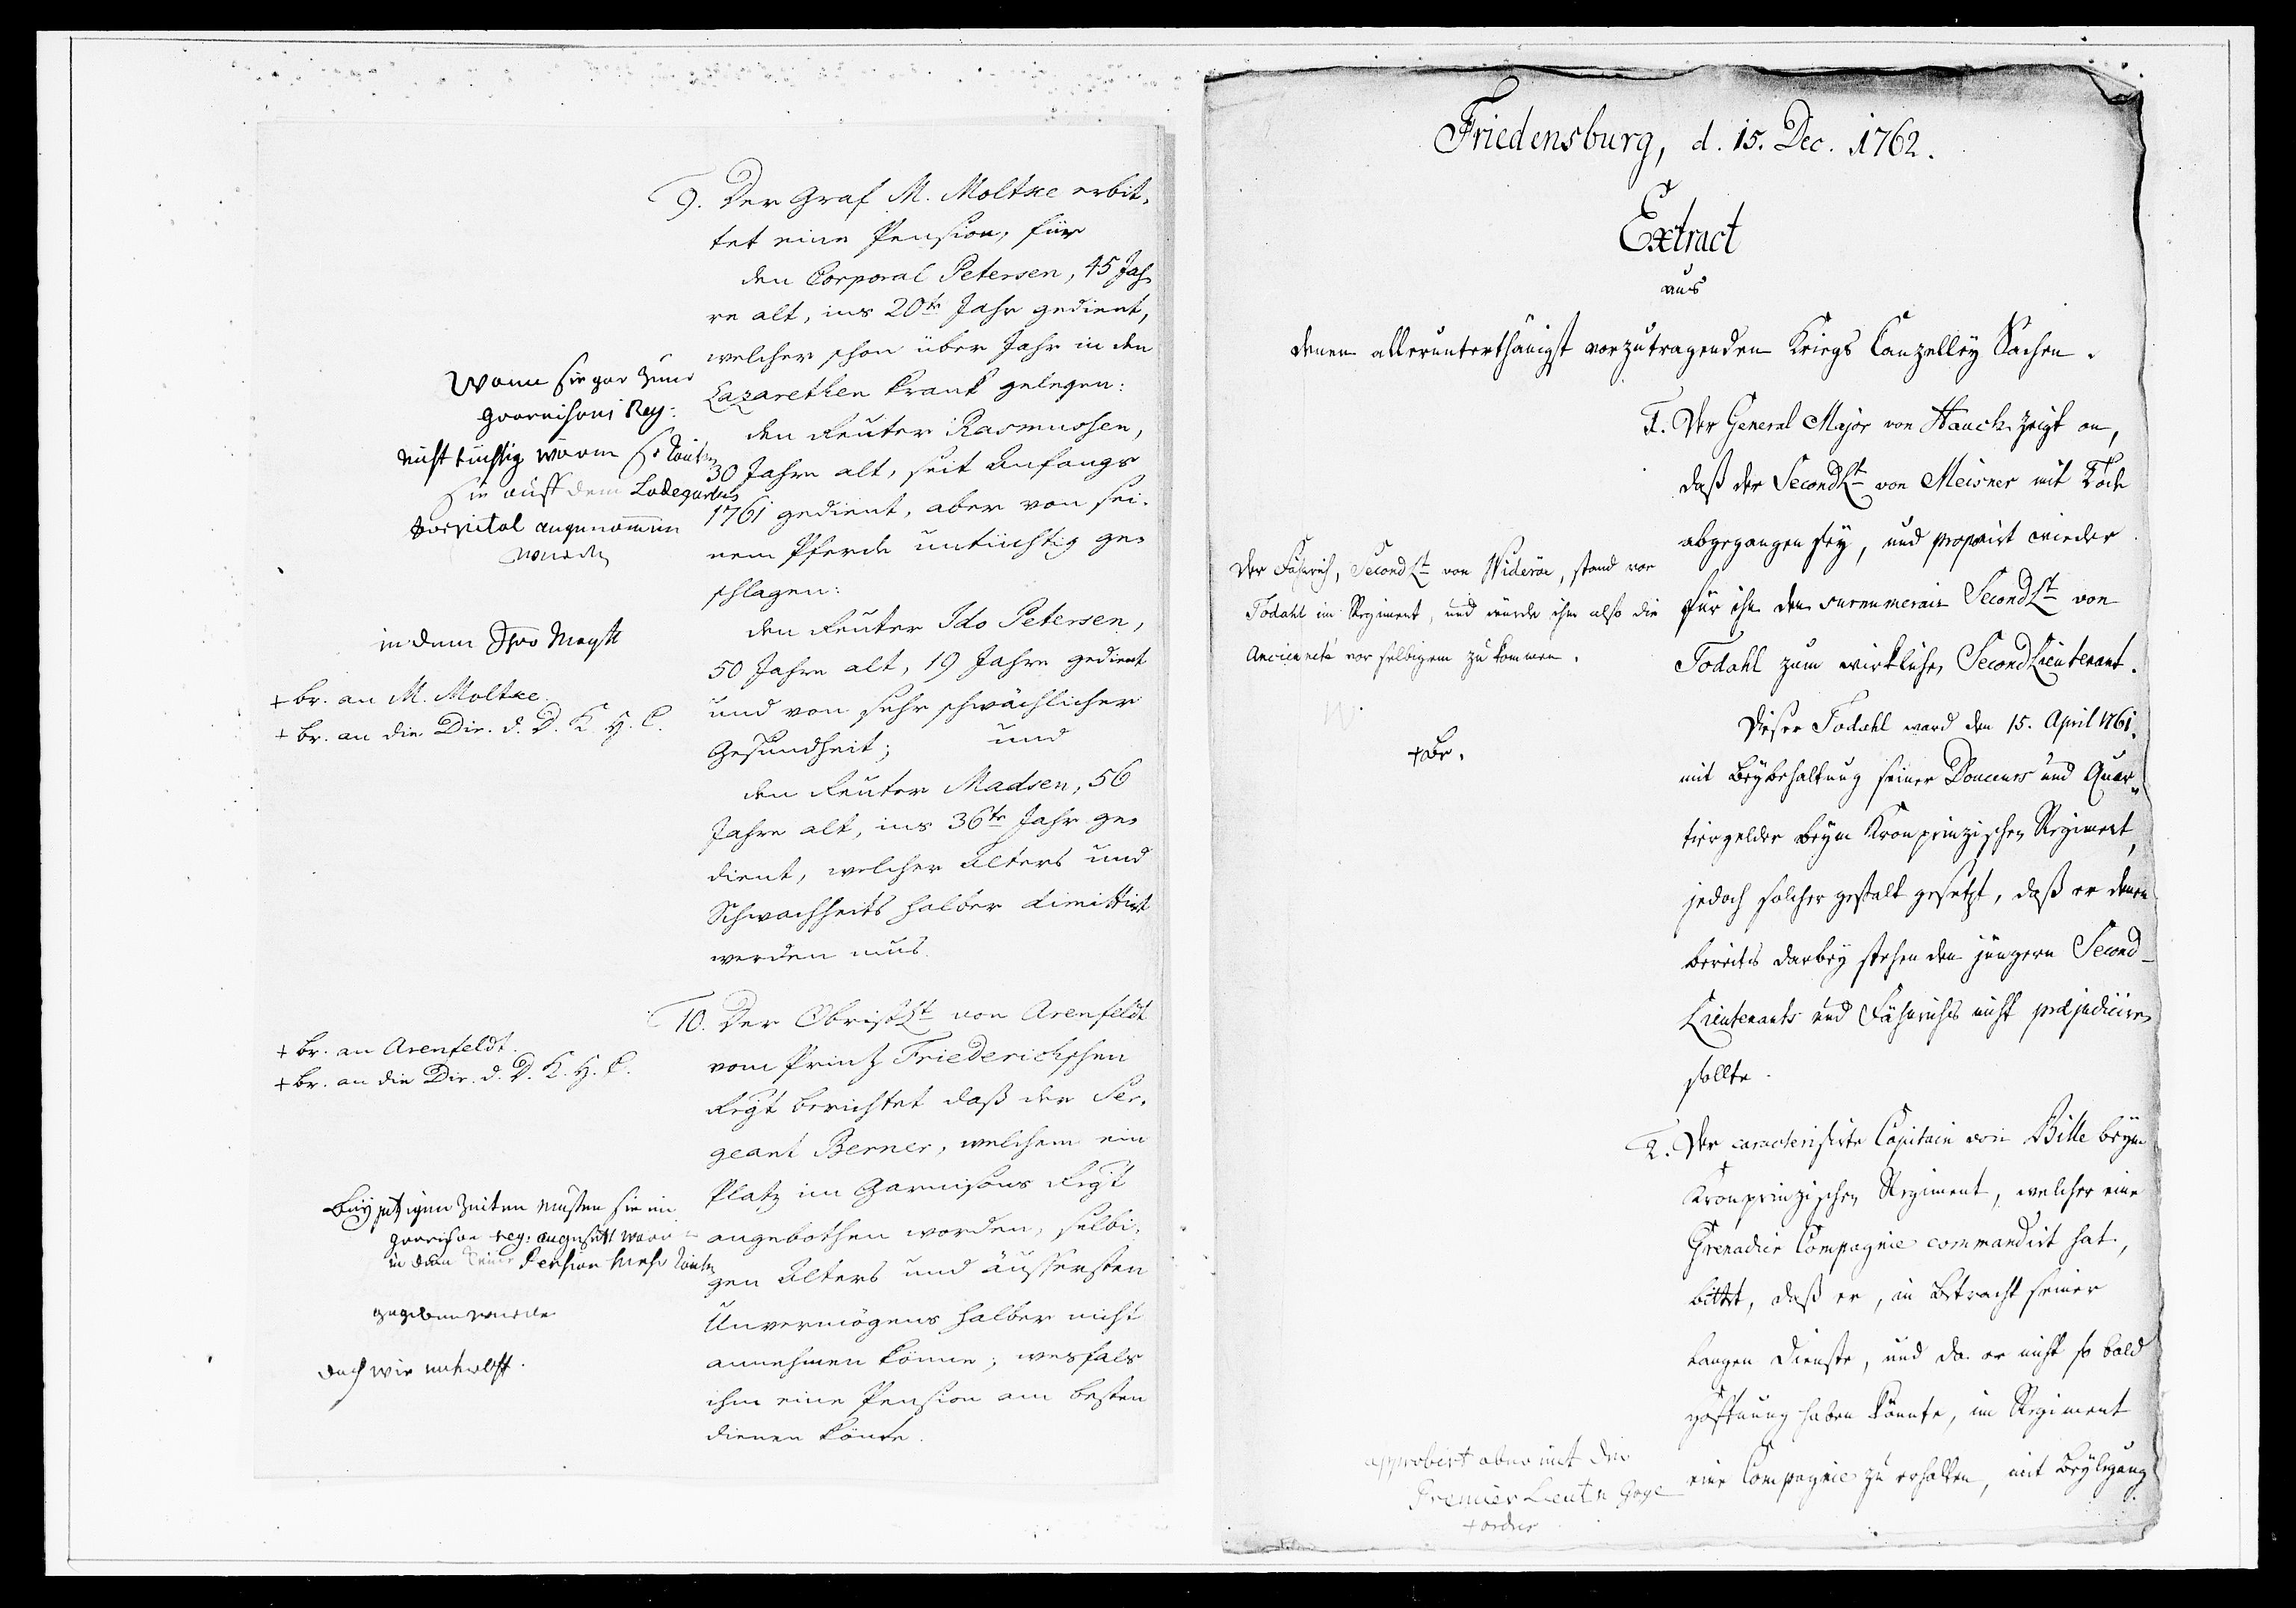 9. Der Graf M. Moltke erbit,
tet eine Pension, für
den Corporal Petersen, 45 Jah,
re alt, ins 20te Jahr gedient,
welcher schon über Jahr in den
Lazarethen krank gelegen:
den Reuter Rasmussen,
30 Jahre alt, seit Anfangs
1761 gedient, aber von sei,
nem Pferde untüchtig ge,
schlagen:
den Reuter Ido Petersen,
50 Jahre alt, 19 Jahre gedient
und von sehr schwächlicher
Gesundheit; und
den Reuter Madsen, 56
Jahre alt, ins 36te Jahr ge,
dient, welcher Alters und
Schwachheits halber dimittirt
werden mus.
Wann sie gar zum
guarnisons Reg:
nicht tüchtig wären so könten
sie auff dem Ladegards
hospital angenommen
werden
in dem Fro Mayst
+ br. an M. Moltke.
+ br. an die Dir. d. D. K. H. C.
10. Der ObristLt von Arenfeldt
vom Printz Friederichschen
Regt berichtet daß der Ser,
geant Berner, welchem ein
Platz im Garnisons Regt
angebothen worden, selbi,
gen Alters und äussersten
Unvermögens halber nicht
annehmen könne; wesfals
ihm eine Pension am besten
dienen könte.
+ br. an Arenfeldt.
+ br. an die Dir. d. D. K. H. C.
Bey jetzigen Zeiten müsten sie im
guarnison reg: angesetzt werden
in dem keine Pension mehr könte
gegeben werde
doch wie unterhofft.
Friedensburg, d. 15. Dec. 1762.
Extract
aus
denen allerunterthänigst vorzutragenden Kriegs Canzelley Sachen.
1. Der General Major von Hauch zeigt an,
daß der SecondLt von Meisner mit Tode
abgegangen sey, und proponirt wieder
für ihn den surnumerair SecondLt von
Todahl zum wirklichen SecondLieutenant.
Dieser Todahl ward den 15. April 1761.
mit Beybehaltung seiner Douceurs und Quar„
tiergelder beym Kronprinzischen Regiment,
jedoch solcher gestalt gesetzt, daß er denen
bereits darbey stehenden jüngern Second-
Lieutenants und Fähnrichs nicht præjudiciren
sollte.
Der Fähnrich, SecondLt von Wideröe, stand vor
Todahl im Regiment, und würde ihm also die
Ancienneté vor selbigem zu kommen.
+ Br.
2. Der caracterisirte Capitain von Bille beym
Kronprinzischen Regiment, welcher eine
Grenadier Compagnie commandirt hat,
bittet, daß er, in Betracht seiner
langen Dienste, und da er nicht so bald
Hoffnung haben könnte, im Regiment
eine Compagnie zu erhalten, mit Beylegung
approbirt aber mit des
Premier Leutn Gage
+ ordres